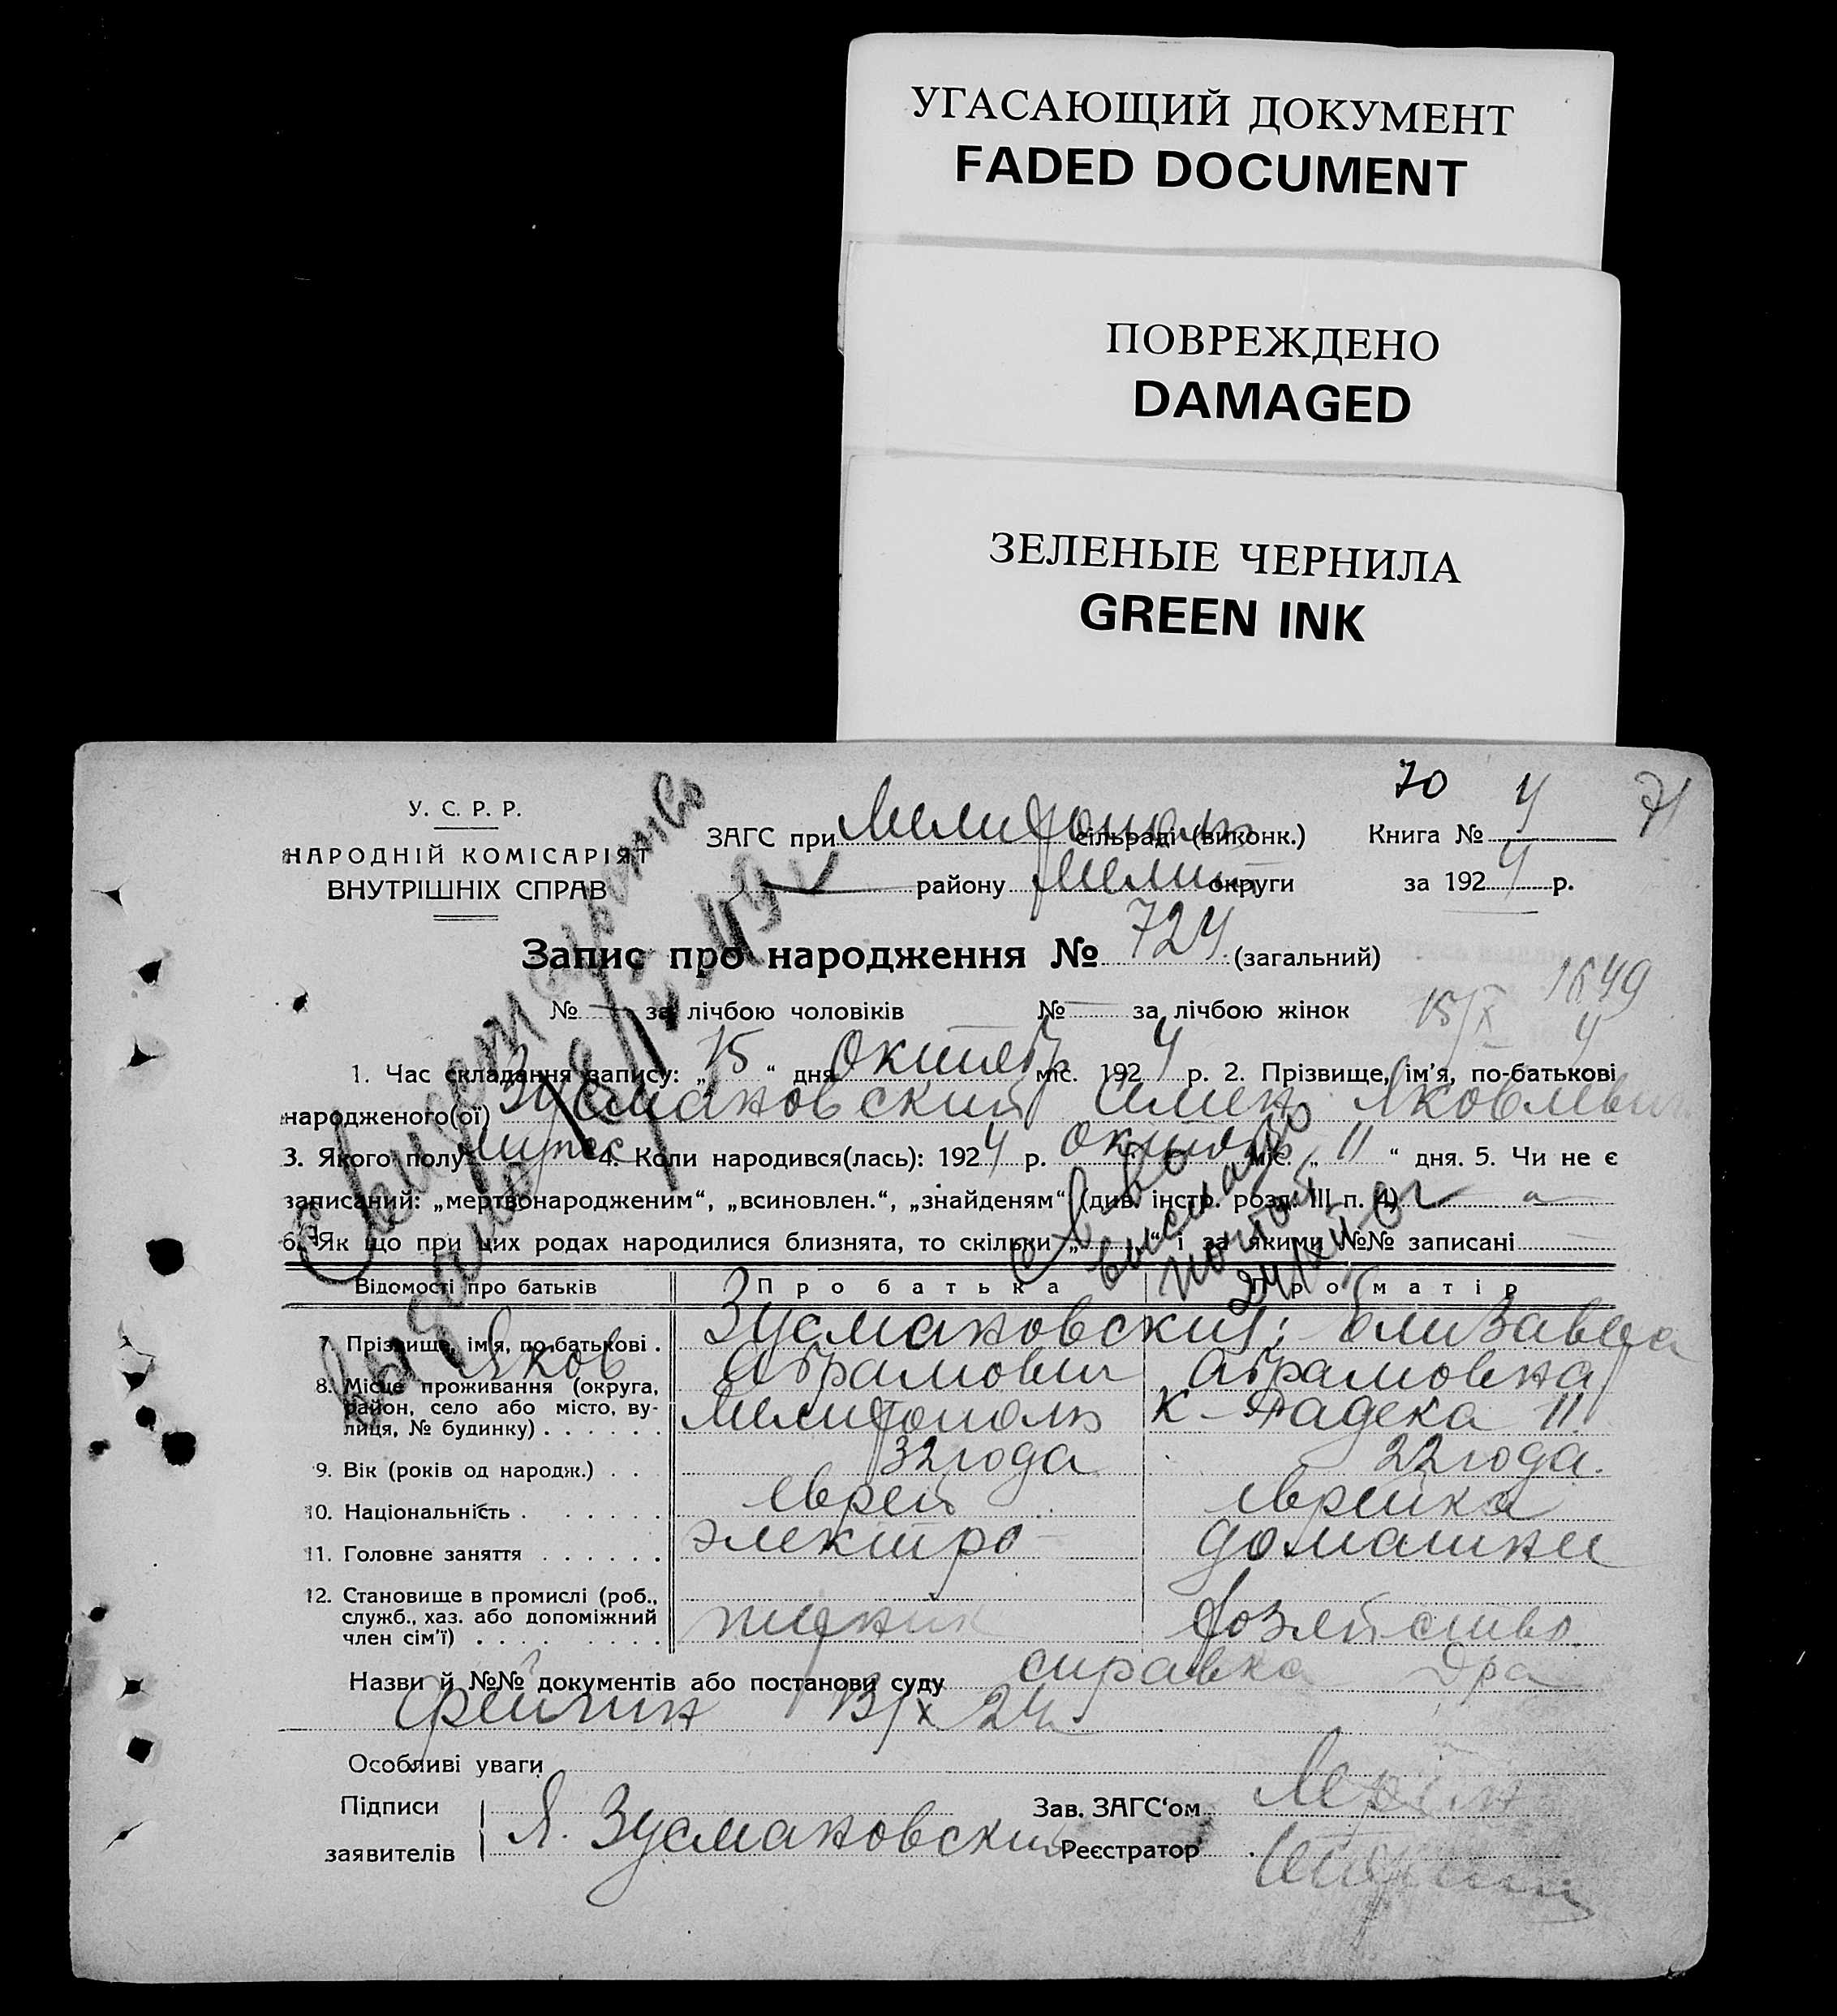 УГАСАЮЩИЙ ДОКУМЕНТ
FADED DOCUMENT
ПОВРЕЖДЕНО
DAMAGED
ЗЕЛЕНЫЕ ЧЕРНИЛА
GREEN INK
70 71
У. С. Р. Р.
НАРОДНІЙ КОМІСАРІЯТ
ВНУТРІШНІХ СПРАВ
ЗАГС при Мелитополь сільраді (виконк.) Книга № 4
району Мелит округи за 1924 р.
Запис про народження № 724 (загальний)
№ — за лічбою чоловіків № — за лічбою жінок
15/X 1649
1. Час складання запису: „15“ дня Октябр міс. 1924 р. 2. Прізвище, ім'я, по-батькові
народженого(ої) Зусмановский Яковлевич
3. Якого полу 4. Коли народився(лась): 1924 р. Октябр міс. „11“ дня. 5. Чи не є
записаний: „мертвонародженим“, „всиновлен.“, „знайденям“ (див. інстр. розд. III п. 4)
6. Як що при цих родах народилися близнята, то скільки „ “ і за якими №№ записані
Свидетельство
выдано
высилано
почтой
Відомості про батьків Про батька Про матір
7. Прізвище, ім'я, по-батькові . Зусмановский Елизавета
Яков Абрамович Абрамовна
8. Місце проживання (округа,
район, село або місто, ву-
лиця, № будинку) . . . . . . Мелитополь К-Радека 11
9. Вік (років од народж.) . . 32 года 22 года.
10. Національність . . . . . . еврей еврейка
11. Головне заняття . . . . . . электро- домашнее
12. Становище в промислі (роб.,
служб., хаз. або допоміжний
член сім'ї) . . . . . . . . . хозяйство
Назви й №№ документів або постанови суду справка Д-ра
13/X 24
Особливі уваги
Підписи
заявителів Я. Зусмановский
Зав. ЗАГС'ом
Реєстратор